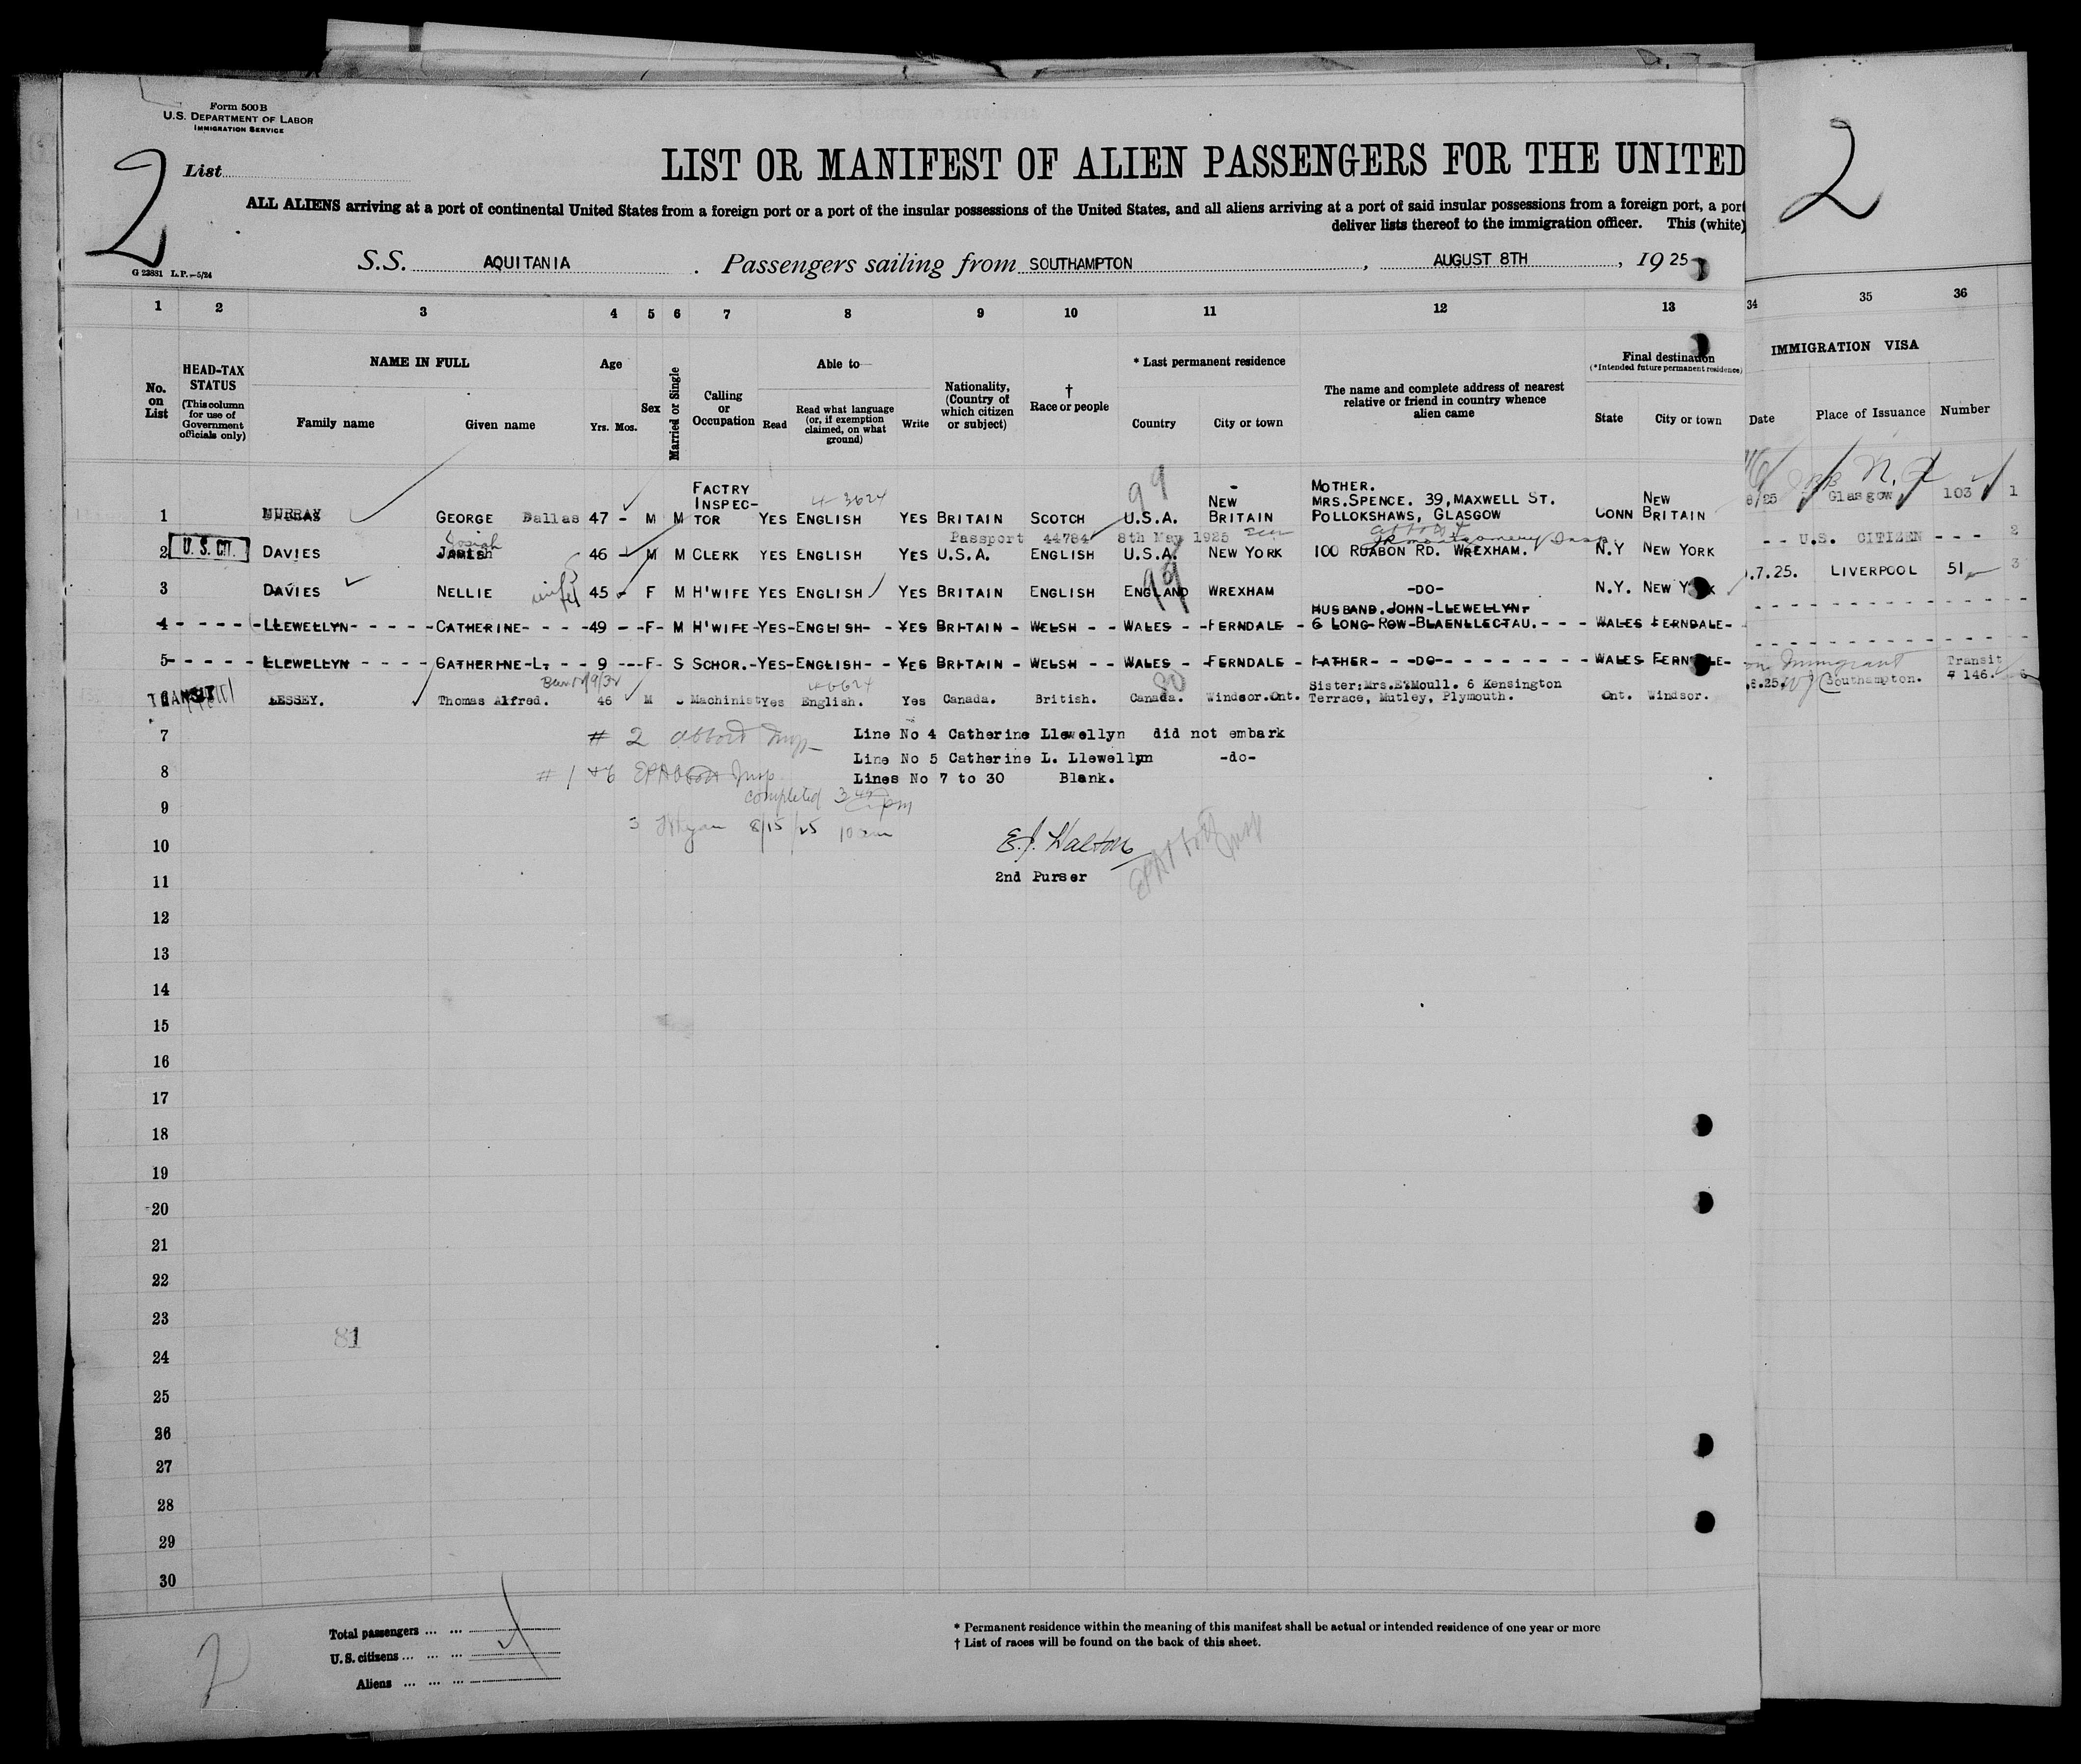 Form 500B
U.S. DEPARTMENT OF LABOR
IMMIGRATION SERVICE
2
List
LIST OR MANIFEST OF ALIEN PASSENGERS FOR THE UNITED
2
ALL ALIENS arriving at a port of continental United States from a foreign port or a port of the insular possessions of the United States, and all aliens arriving at a port of said insular possessions from a foreign port, a port
deliver lists thereof to the immigration officer. This (white)
S.S. AQUITANIA . Passengers sailing from SOUTHAMPTON , AUGUST 8TH , 1925
G 23881 L.P.—5/24
1 2 3 4 5 6 7 8 9 10 11 12 13 34 35 36
No. on List
HEAD-TAX STATUS (This column for use of Government officials only)
NAME IN FULL
Family name Given name
Age
Yrs. Mos.
Sex
Married or Single
Calling or Occupation
Able to
Read Read what language (or, if exemption claimed, on what ground) Write
Nationality, (Country of which citizen or subject)
† Race or people
* Last permanent residence
Country City or town
The name and complete address of nearest relative or friend in country whence alien came
Final destination
(*Intended future permanent residence)
State City or town
IMMIGRATION VISA
Date Place of Issuance Number
1 MURRAY GEORGE Dallas 47 - M M FACTRY INSPEC-TOR YES ENGLISH 4-3624 YES BRITAIN SCOTCH 99 U.S.A. NEW BRITAIN MOTHER. MRS.SPENCE. 39, MAXWELL ST. POLLOKSHAWS, GLASGOW CONN NEW BRITAIN 8/25 Glasgow 103 1
Passport 44784 8th May 1925
2 U.S. CIT. DAVIES Josiah 46 - M M CLERK YES ENGLISH YES U.S.A. ENGLISH U.S.A. NEW YORK 100 RUABON RD. WREXHAM. N.Y NEW YORK - - U.S. CITIZEN - - - 2
3 DAVIES NELLIE wife 45 - F M H'WIFE YES ENGLISH YES BRITAIN ENGLISH 99 ENGLAND WREXHAM -DO- N.Y. NEW YORK .7.25. LIVERPOOL 51 3
4 - - - - LLEWELLYN - - - - CATHERINE - - - 49 - - F - M H'WIFE-YES-ENGLISH - - YES BRITAIN - WELSH - - WALES - - FERNDALE - HUSBAND.JOHN-LLEWELLYN- 6 LONG-ROW-BLAENLLECTAU. - - - WALES FERNDALE-
5 - - - - LLEWELLYN - - - - CATHERINE-L. - - 9 - - F - S SCHOR.-YES-ENGLISH - - YES BRITAIN - WELSH - - WALES - FERNDALE - FATHER - - -DO- - - - - WALES FERNDALE-
TRANSIT LESSEY. Thomas Alfred. 46 M Machinist Yes English. Yes Canada. British. 80 Canada. Windsor.Ont. Sister:Mrs.E.Moull. 6 Kensington Terrace, Mutley, Plymouth. Ont. Windsor. .8.25. Southampton. Immigrant Transit # 146. 6
7 # 2 Abbott Insp Line No 4 Catherine Llewellyn did not embark
Line No 5 Catherine L. Llewellyn -do-
8 # 1 + 6 EPAbbott Insp. Lines No 7 to 30 Blank.
completed 3 45 pm
9
3 8/15/25 10 am
10 E.J. Walton
11 2nd Purser
12
13
14
15
16
17
18
19
20
21
22
23
81
24
25
26
27
28
29
30
Total passengers ... ...
U.S. citizens ... ... ...
Aliens ... ... ...
2
* Permanent residence within the meaning of this manifest shall be actual or intended residence of one year or more
† List of races will be found on the back of this sheet.